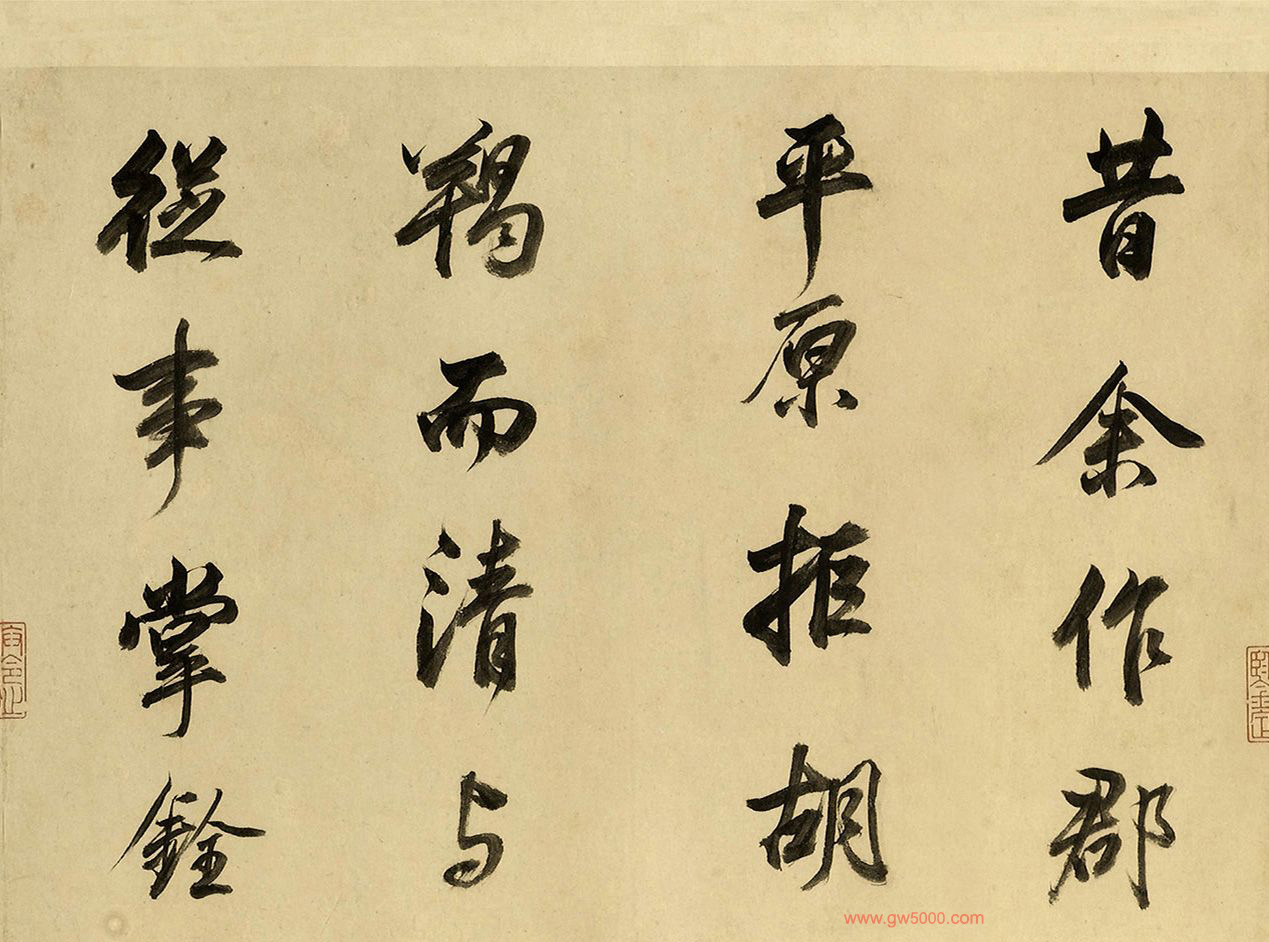 昔余作郡
平原拒胡
羯而清与
從事掌銓
www.gw5000.com